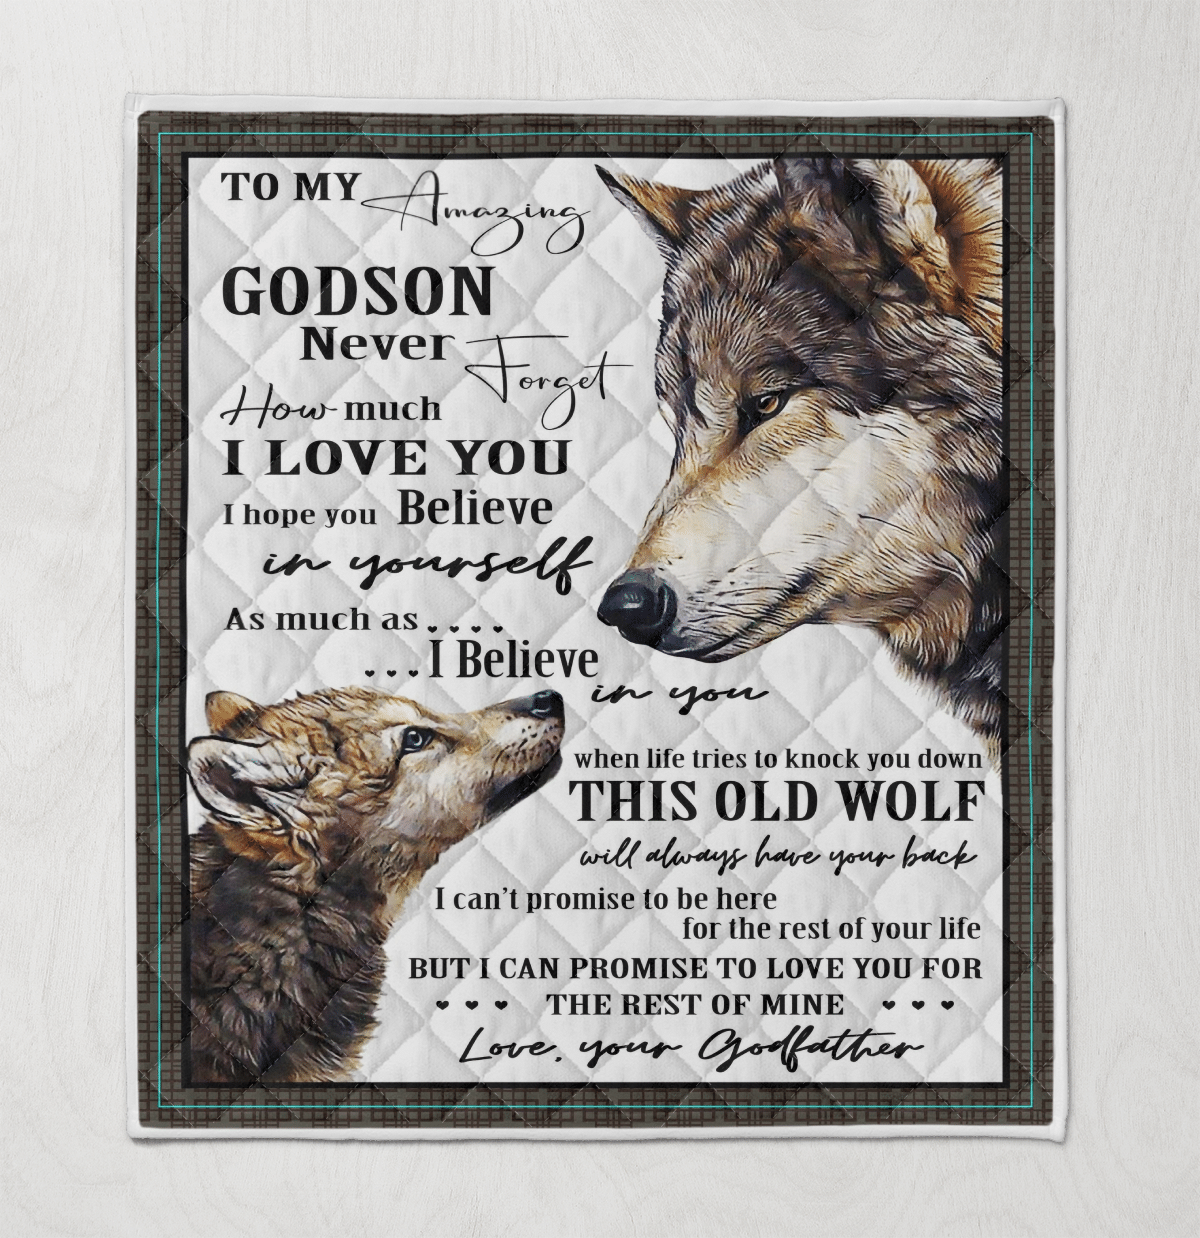 TO MY Amazing
GODSON
Never Forget
How much
I LOVE YOU
I hope you Believe
in yourself
As much as
I Believe
in you
when life tries to knock you down
THIS OLD WOLF
will always have your back
I can't promise to be here
for the rest of your life
BUT I CAN PROMISE TO LOVE YOU FOR
THE REST OF MINE
Love, your Godfather